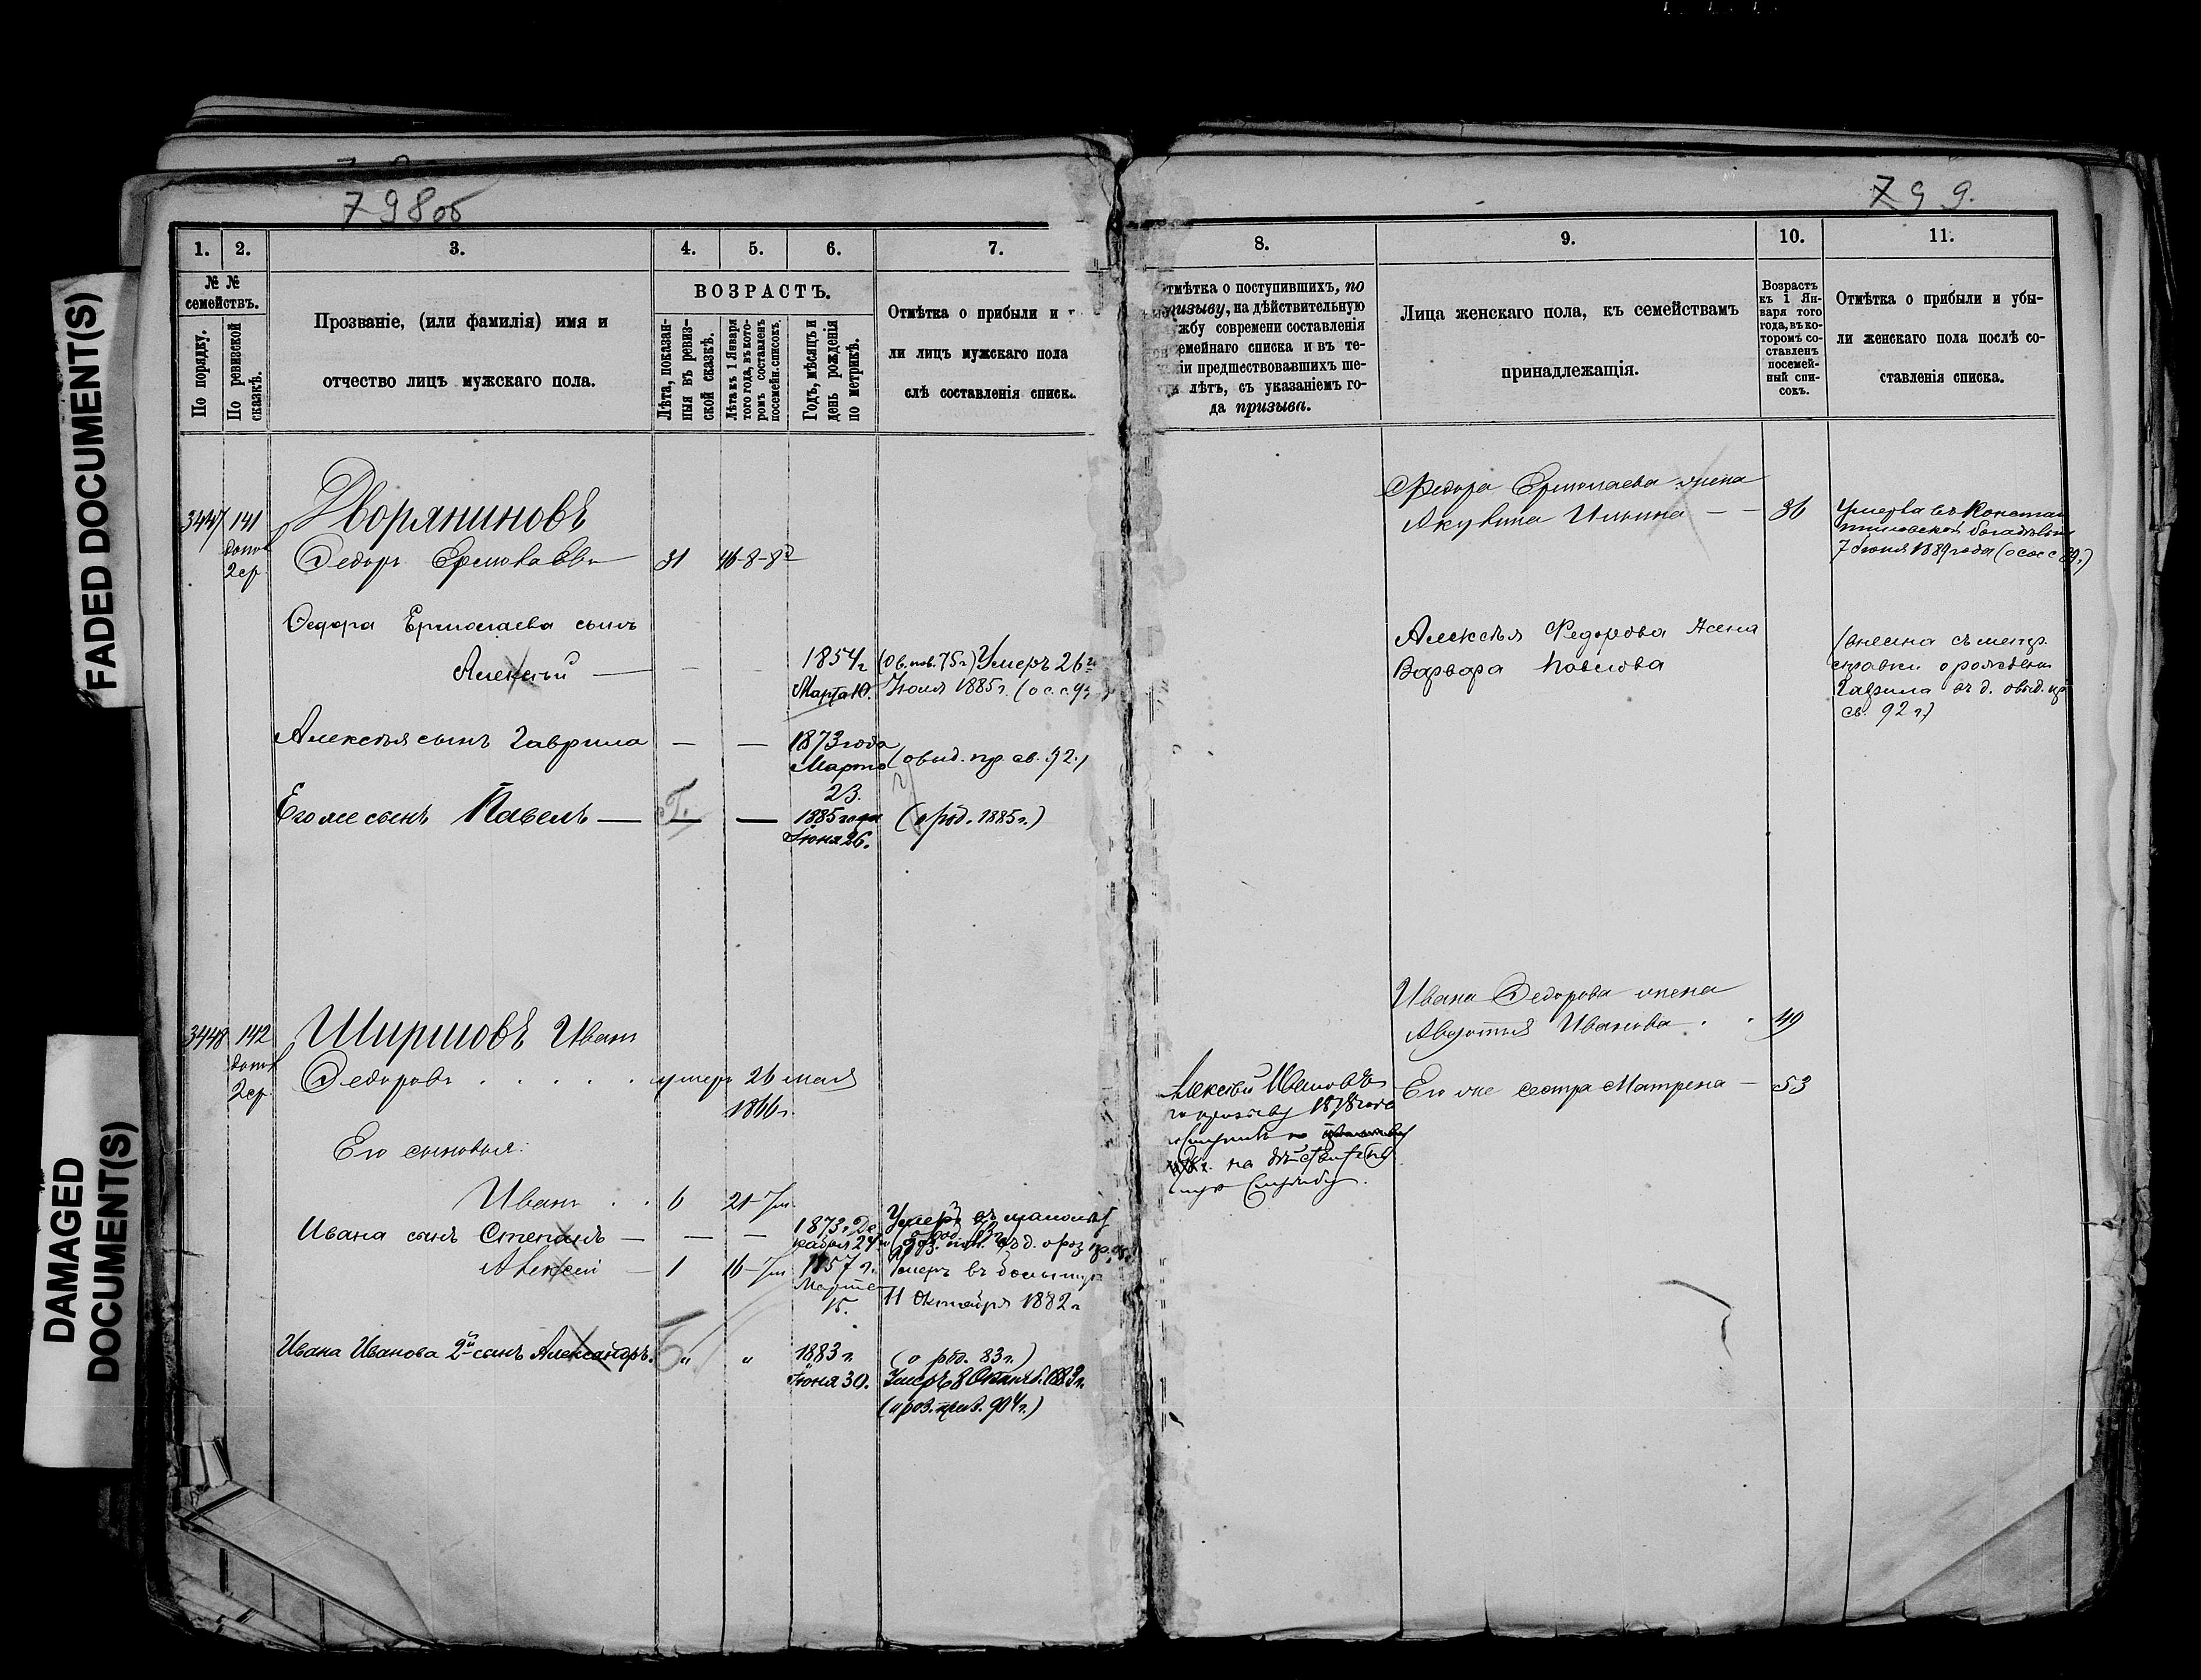 FADED DOCUMENT(S)
DAMAGED
DOCUMENT(S)
798об
1. 2. 3. 4. 5. 6. 7.
№ №
семействъ.
По порядку.
По ревизской
сказкѣ.
Прозваніе, (или фамилія) имя и
отчество лицъ мужскаго пола.
ВОЗРАСТЪ.
Лѣта, показан-
ныя въ ревиз-
ской сказкѣ.
Лѣта къ 1 Января
того года, въ кото-
ромъ составленъ
посемейн. списокъ.
Годъ, мѣсяцъ и
день рожденія
по метрикѣ.
Отмѣтка о прибыли и
ли лицъ мужскаго пола
слѣ составленія списка
3447 141 Дворяниновъ
2ср Федоръ Ермолаевъ 31 46-8-82
Федора Ермолаева сынъ
Алексѣй — 1854 г. Умеръ 26
Марта 10. Іюля 1885 г.
Алексѣя сынъ Гаврила — — 1873 года
Марта (о выд. пр. св. 92.)
23.
Его же сынъ Павелъ — — 1885 года (о рожд. 1885 г.)
Іюня 26.
3448 142 Ширшовъ Иванъ
2ср Федоровъ . . . . . умеръ 26 мая
1866 г.
Его сыновья:
Иванъ . . 6 21
Ивана сынъ Степанъ — — — 1873 г. Де
кабря 24
Алексѣй — 1 16 1857 г. Умеръ въ больницѣ
Марта 11 Октября 1882 г.
15.
Ивана Иванова 2й сынъ Александръ. „ „ 1883 г. (о рожд. 83 г.)
Іюня 30. Умеръ 8 Октяб. 1883 г.
799.
8. 9. 10. 11.
Отмѣтка о поступившихъ, по
призыву, на дѣйствительную
жбу современи составленія
емейнаго списка и въ те-
іи предшествовавшихъ ше-
лѣтъ, съ указаніемъ го-
да призыва.
Лица женскаго пола, къ семействамъ
принадлежащія.
Возрастъ
къ 1 Ян-
варя того
года, въ ко-
торомъ со-
ставленъ
посемей-
ный спи-
сокъ.
Отмѣтка о прибыли и убы-
ли женскаго пола послѣ со-
ставленія списка.
Федора Ермолаева жена
Акулина Ильина — — 36 Умерла въ Констан
тиновской богадѣльнѣ
7 Іюня 1889 года
Алексѣя Федорова жена
Варвара Павлова (внесена съ метр.
справки о рожденіи
Гаврила
св. 92 г.)
Ивана Федорова жена
Авдотья Иванова . . 49
Его же сестра Матрена — 53
Алексѣй Ивановъ
по призыву 1878 года
на дѣйствитель
ную службу.